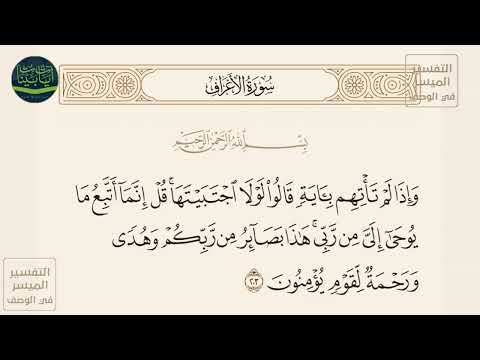 سُورَةُ الأَعْرَافِ
التفسير
الميسر
في الوصف
بِسْمِ اللَّهِ الرَّحْمَٰنِ الرَّحِيمِ
وَإِذَا لَمْ تَأْتِهِم بِـَٔايَةٖ قَالُواْ لَوْلَا ٱجْتَبَيْتَهَاۚ قُلْ إِنَّمَآ أَتَّبِعُ مَا
يُوحَىٰٓ إِلَيَّ مِن رَّبِّيۚ هَٰذَا بَصَآئِرُ مِن رَّبِّكُمْ وَهُدٗى
وَرَحْمَةٞ لِّقَوْمٖ يُؤْمِنُونَ ٢٠٣
التفسير
الميسر
في الوصف